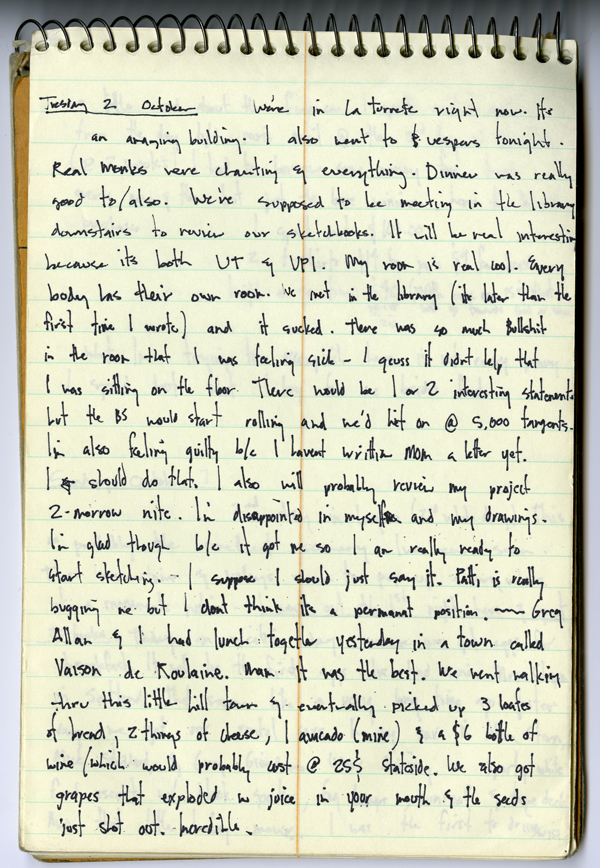 Tuesday 2 October We're in La turrete right now. Its
an amazing building. I also went to vespers tonight.
Real monks were chanting & everything. Dinner was really
good to/also. We're supposed to be meeting in the library
downstairs to review our sketchbooks. It will be real interesting
because its both UT & VPI. My room is real cool. Every
body has their own room. We met in the library (its later than the
first time I wrote) and it sucked. There was so much Bullshit
in the room that I was feeling sick – I guess it didnt help that
I was sitting on the floor. There would be 1 or 2 interesting statements
but the BS would start rolling and we'd hit on @ 5,000 tangents.
I'm also feeling guilty b/c I havent written Mom a letter yet.
I should do that. I also will probably review my project
2-morrow nite. I'm disappointed in myself and my drawings.
I'm glad though b/c it got me so I am really ready to
start sketching. – I suppose I should just say it. Patti is really
bugging me but I dont think its a permanat position. — Greg
Allan & I had lunch together yesterday in a town called
Vaison de Roulaine. Man it was the best. We went walking
thru this little hill town & eventually picked up 3 loafes
of bread, 2 things of cheese, 1 avacado (mine) & a $6 bottle of
wine (which would probably cost @ 25$ stateside. We also got
grapes that exploded w juice in your mouth & the seeds
just shot out. Incredible.